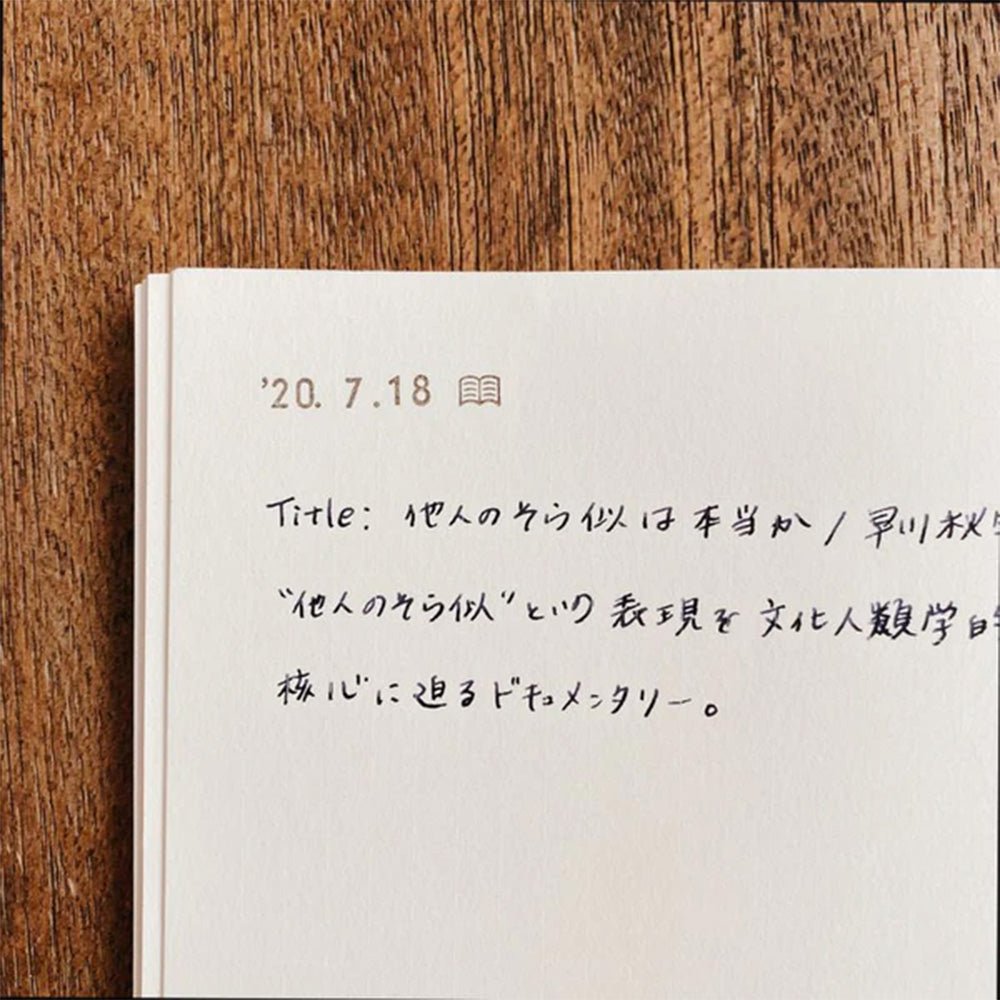 '20. 7.18
Title: 他人のそら似は本当か / 早川秋
"他人のそら似"という表現を文化人類学的
核心に迫るドキュメンタリー。